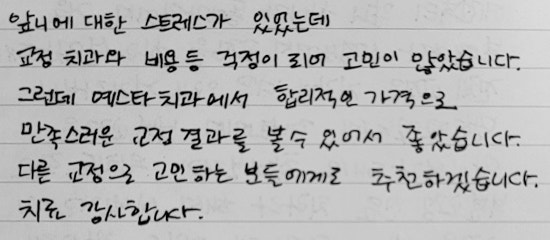 앞니에 대한 스트레스가 있었는데
교정 치과와 비용등 걱정이 되어 고민이 많았습니다.
그런데 예스타치과에서 합리적인 가격으로
만족스러운 교정결과를 볼수 있어서 좋았습니다.
다른 교정으로 고민하는 분들에게도 추천하겠습니다.
치료 감사합니다.